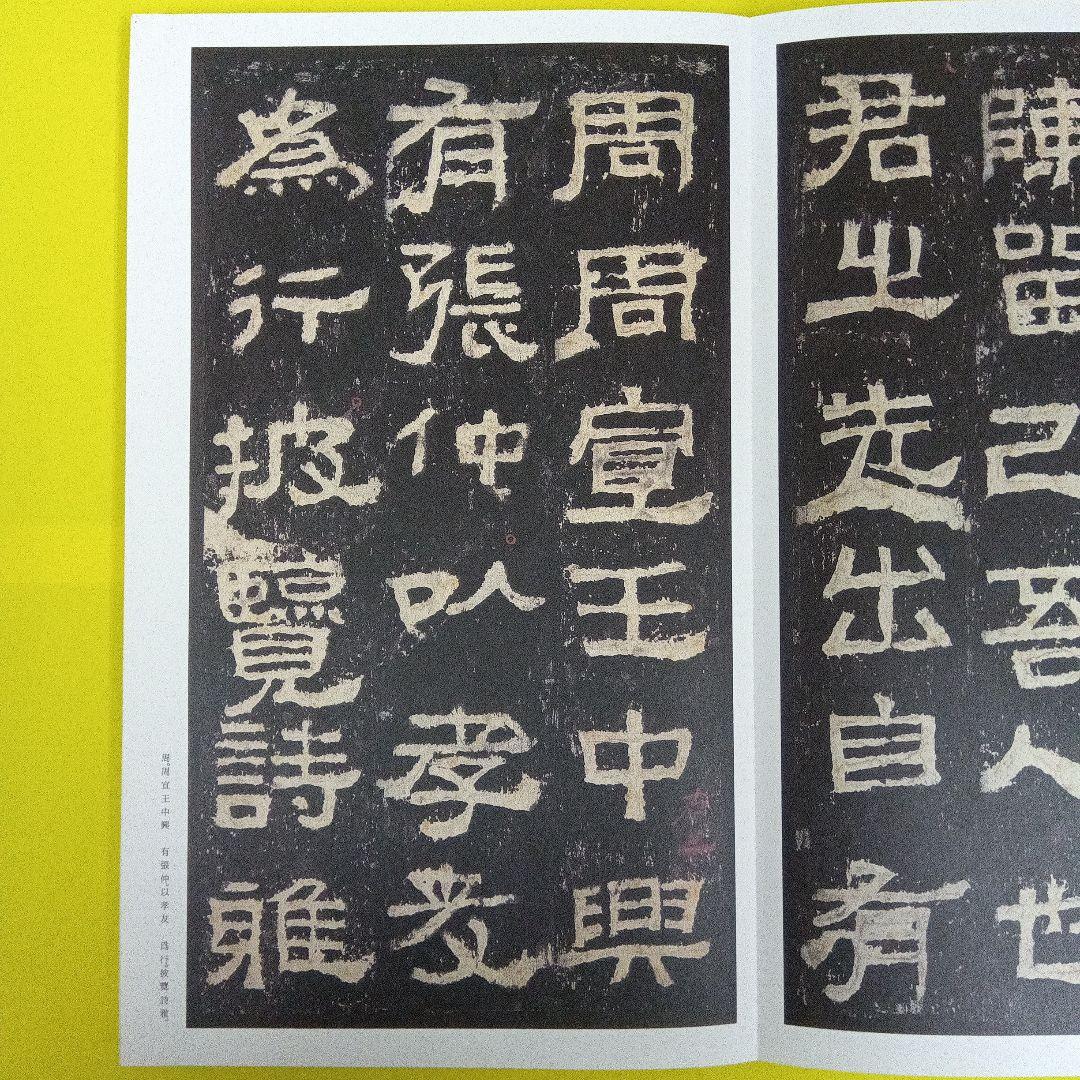 陳留己吾人世
君之先出自有
周周宣王中興
有張仲以孝友
為行披覽詩雅
周周宣王中興 有張仲以孝友 爲行披覽詩雅